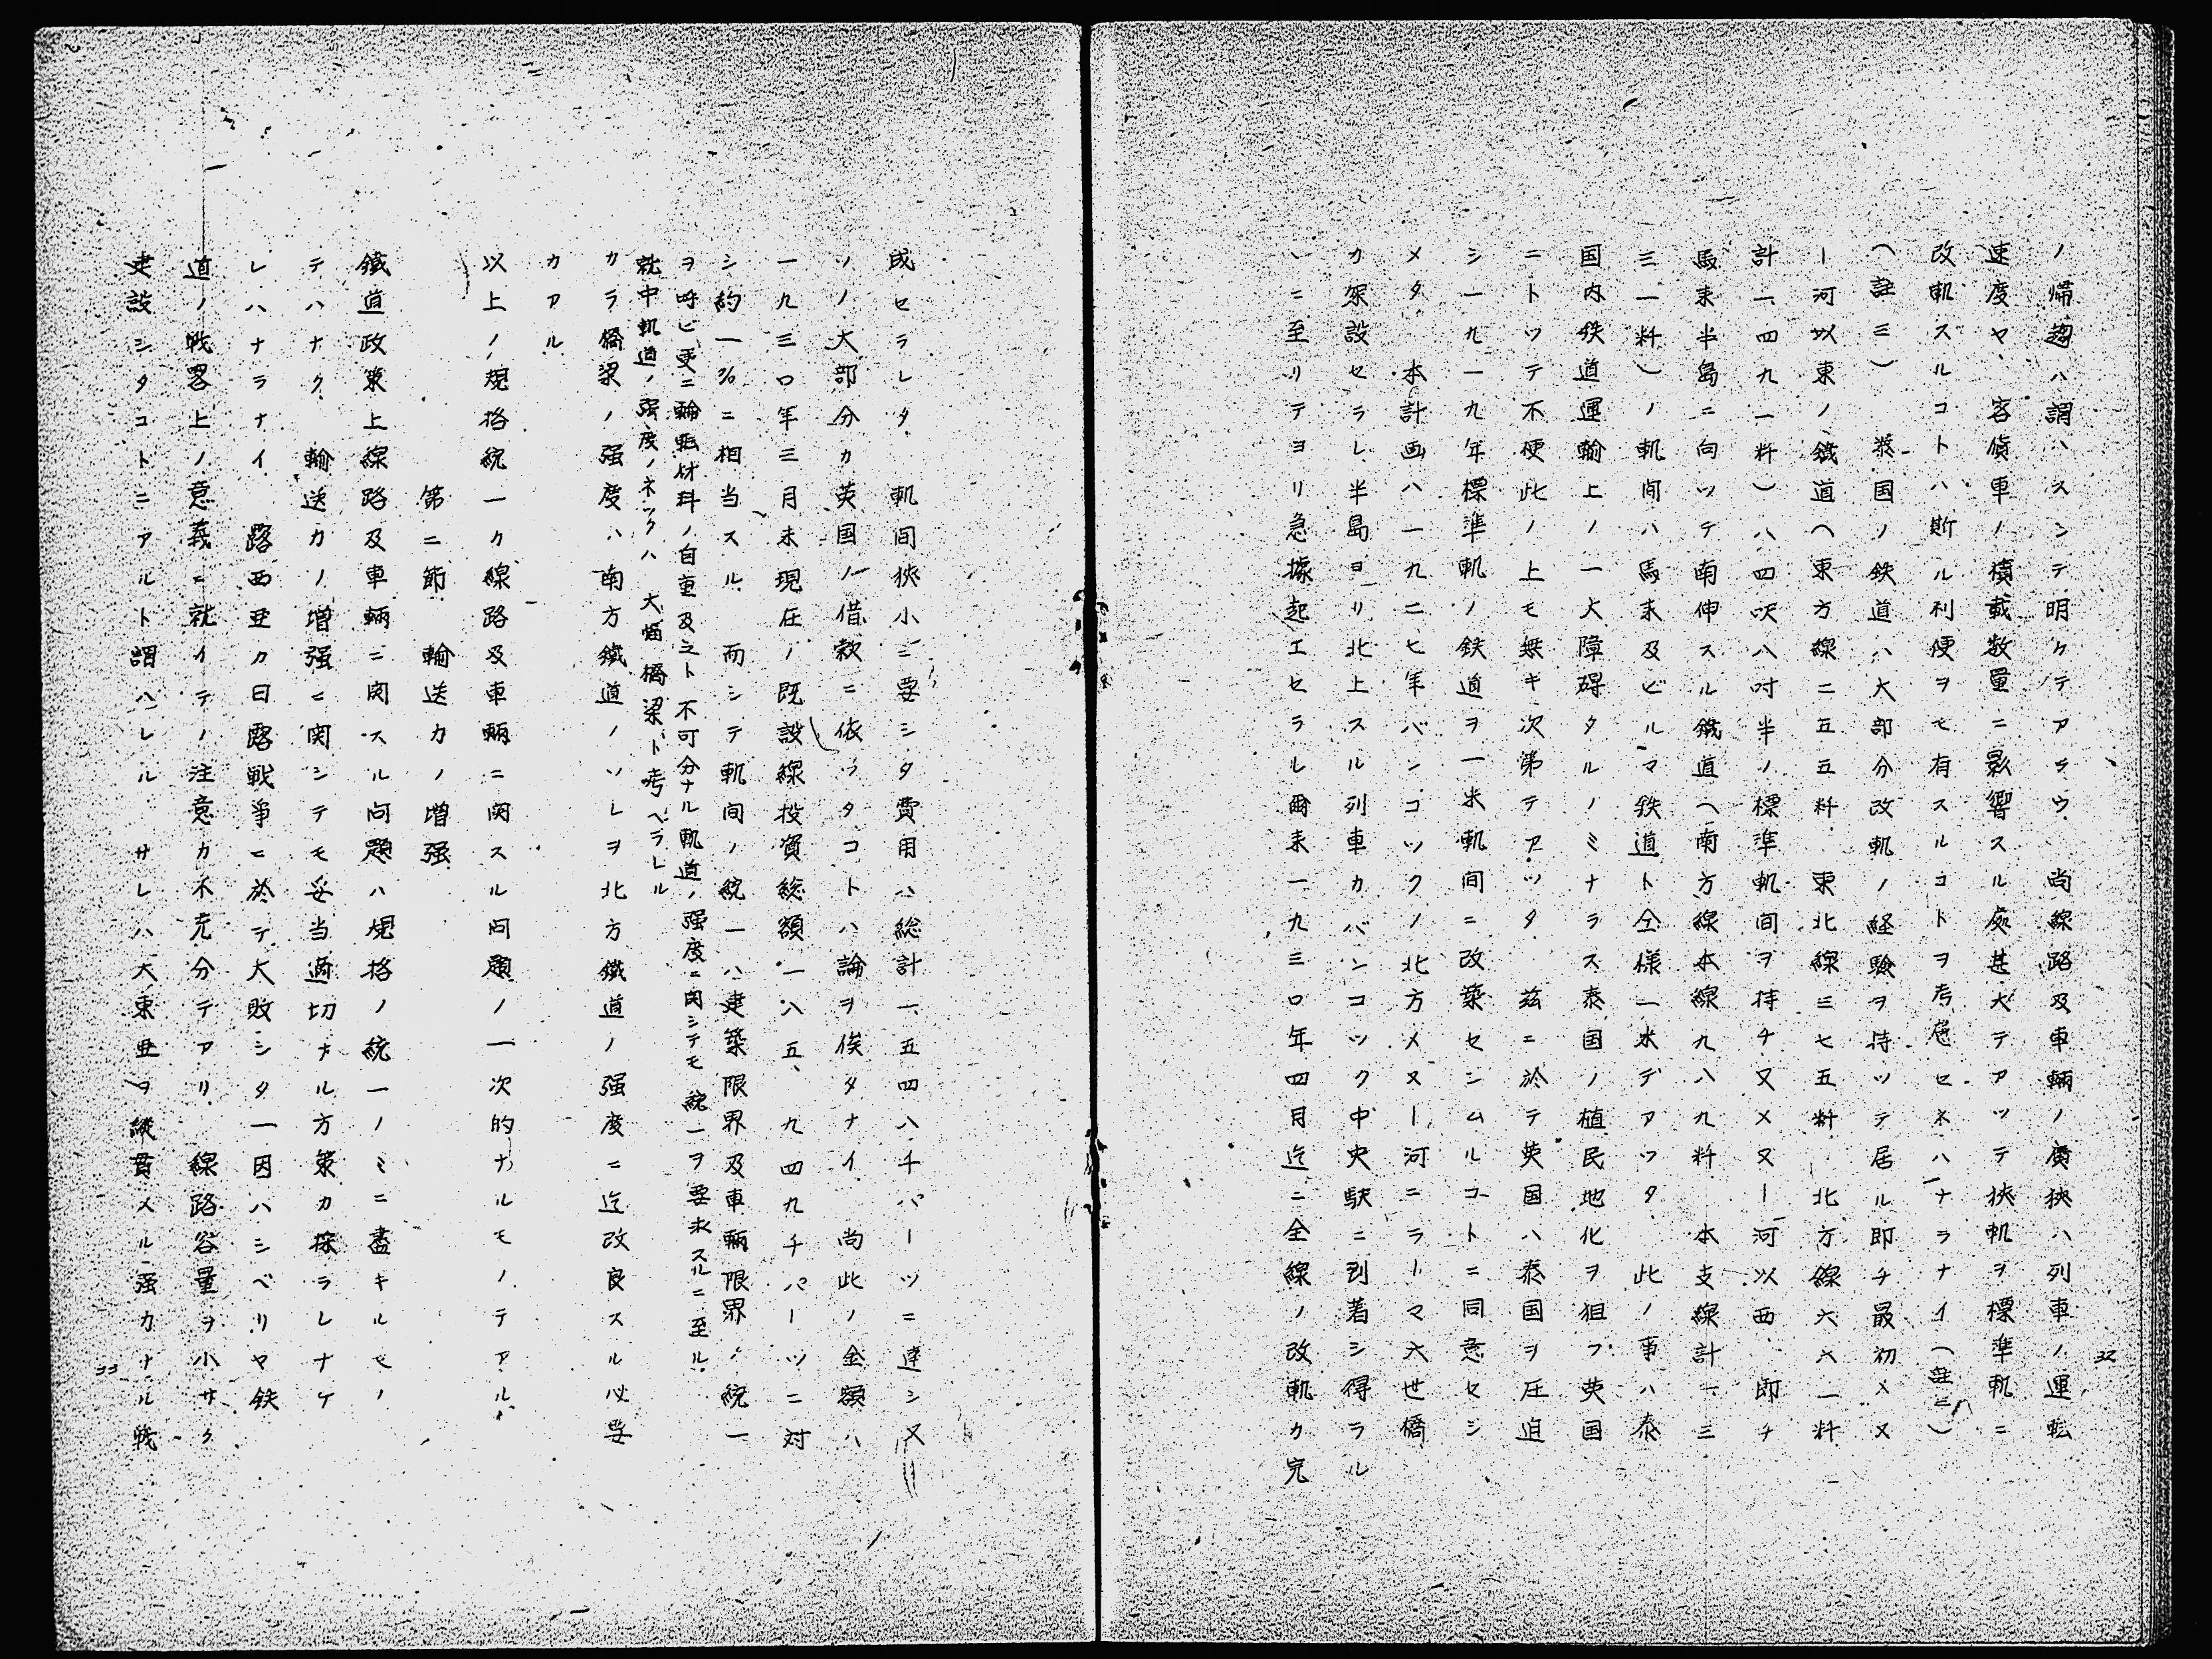 32
ノ帰趨ハ謂ハスシテ明クテアラウ　尚線路及車輛ノ廣狭ハ列車ノ運転
速度ヤ、客貨車ノ積載数量ニ影響スル処甚大テアツテ狭軌ヲ標準軌ニ
改軌スルコトハ斯ル利便ヲモ有スルコトヲ考慮セネハナラナイ（註三）
（註三）　泰国ノ鉄道ハ大部分改軌ノ経験ヲ持ツテ居ル即チ最初メヌ
ー河以東ノ鐵道（東方線二五五粁　東北線三七五粁　北方線六六一粁
計一、四九一粁）ハ四呎八吋半ノ標準軌間ヲ持チ又メヌー河以西　即チ
馬来半島ニ向ツテ南伸スル鐵道（南方線本線九八九粁　本支線計一、三
三一粁）ノ軌间ハ馬来及ビルマ鉄道ト仝様一米デアツタ　此ノ事ハ泰
国内鉄道運輸上ノ一大障碍タルノミナラス泰国ノ植民地化ヲ狙フ英国
ニトツテ不便此ノ上モ無キ次第テアツタ　茲ニ於テ英国ハ泰国ヲ圧迫
シ一九一九年標準軌ノ鉄道ヲ一米軌间ニ改築セシムルコトニ同意セシ
メタ　本計画ハ一九二七年バンコツクノ北方メヌー河ニラーマ六世橋
カ架設セラレ半島ヨリ北上スル列車カバンコツク中央駅ニ到着シ得ラル
ヽニ至リテヨリ急據起工セラレ爾来一九三〇年四月迄ニ全線ノ改軌カ完
成セラレタ　軌间狭小ニ要シタ費用ハ総計一、五四八千パーツニ達シ又
ソノ大部分カ英国ノ借款ニ依ツタコトハ論ヲ俟タナイ　尚此ノ金額ハ
一九三〇年三月末現在ノ既設線投資総額一八五、九四九千パーツニ対
シ約一％ニ相当スル　而シテ軌间ノ統一ハ建築限界及車輛限界ノ統一
ヲ呼ビ更ニ輪転材料ノ自重及之ト不可分ナル軌道ノ强度ニ関シテモ統一ヲ要求スルニ至ル
就中軌道ノ强度ノネックハ　大幅　橋梁ト考ヘラレル
カラ橋梁ノ强度ハ南方鐵道ノソレヲ北方鐵道ノ强度ニ迄改良スル必要
カアル
以上ノ規格統一ク線路及車輛ニ関スル问題ノ一次的ナルモノテアル
第二節　輸送力ノ増强
鐵道政策上線路及車輛ニ関スル问題ハ規格ノ統一ノミニ盡キルモノ
テハナク　輸送力ノ増强ニ関シテモ妥当適切ナル方策カ採ラレナケ
レハナラナイ　路西亜カ日露戦争ニ於テ大敗シタ一因ハシベリヤ鉄
道ノ戦畧上ノ意義ニ就イテノ注意カ不充分テアリ　線路容量ヲ小サク
建設シタコトニアルト謂ハレル　サレハ大東亜ヲ縦貫メル强力ナル戦
33